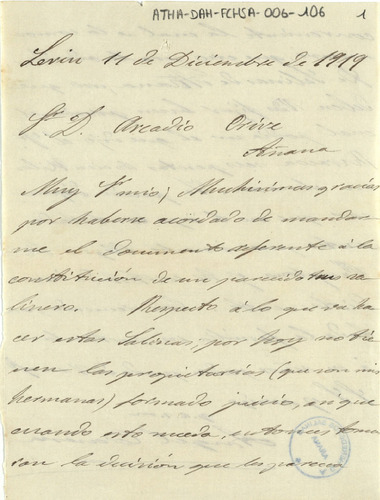 ATHA-DAH-FCHSA-006-106
1
Lerin 11 de Diciembre de 1919
Sr. D. Arcadio Orive
Añana
Muy Sr mio; Muchisimas gracias
por haberse acordado de mandar
me el documento referente á la
constitución de un parecido sa
linero. Respecto á lo que va ha
cer estas Salinas; por hoy no ti
enen los propietarios (que son mis
hermanas) formado juicio, asi que
cuando esto suceda, entonces toma
ran la decisión que les parezca